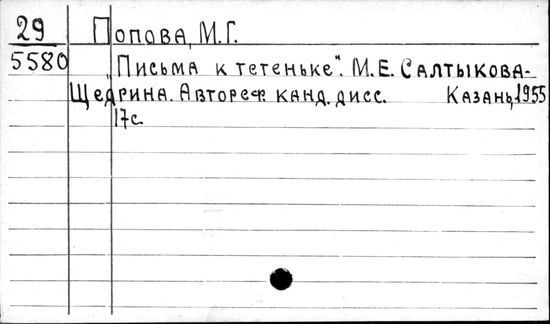 29 Попова, М.Г.
5580 "Письма к тетеньке". М.Е. Салтыкова-
Щедрина. Автореф. канд. дисс. Казань, 1955
17с.